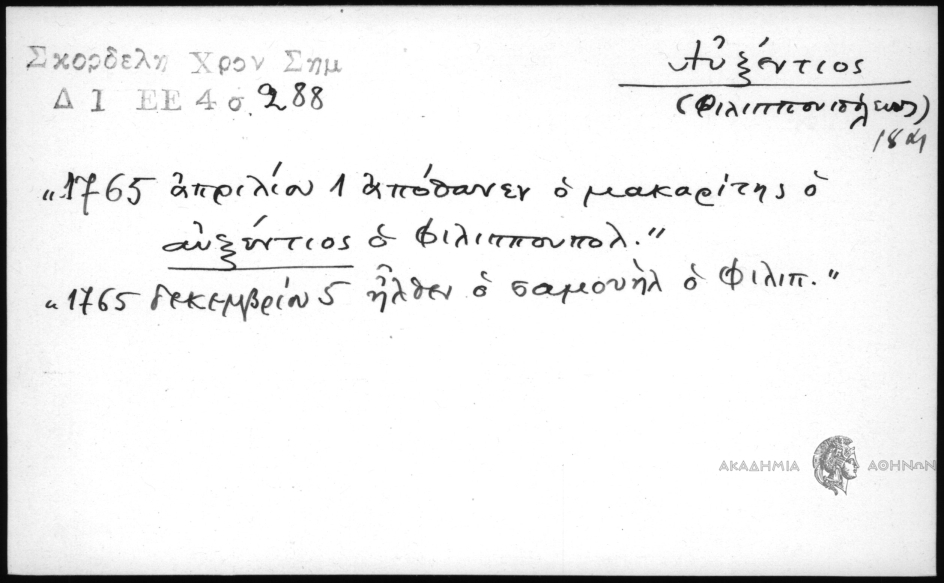 Σκορδελη Χρον Σημ
Δ 1 ΕΕ 4 σ. 288
Αὐξέντιος
(Φιλιππουπόλεως)
„1765 ἀπριλίου 1 ἀπόθανεν ὁ μακαρίτης ὁ
αὐξέντιος ὁ Φιλιππουπολ.”
„1765 δεκεμβρίου 5 ἦλθεν ὁ σαμουὴλ ὁ Φιλιπ.”
ΑΚΑΔΗΜΙΑ ΑΘΗΝΩΝ